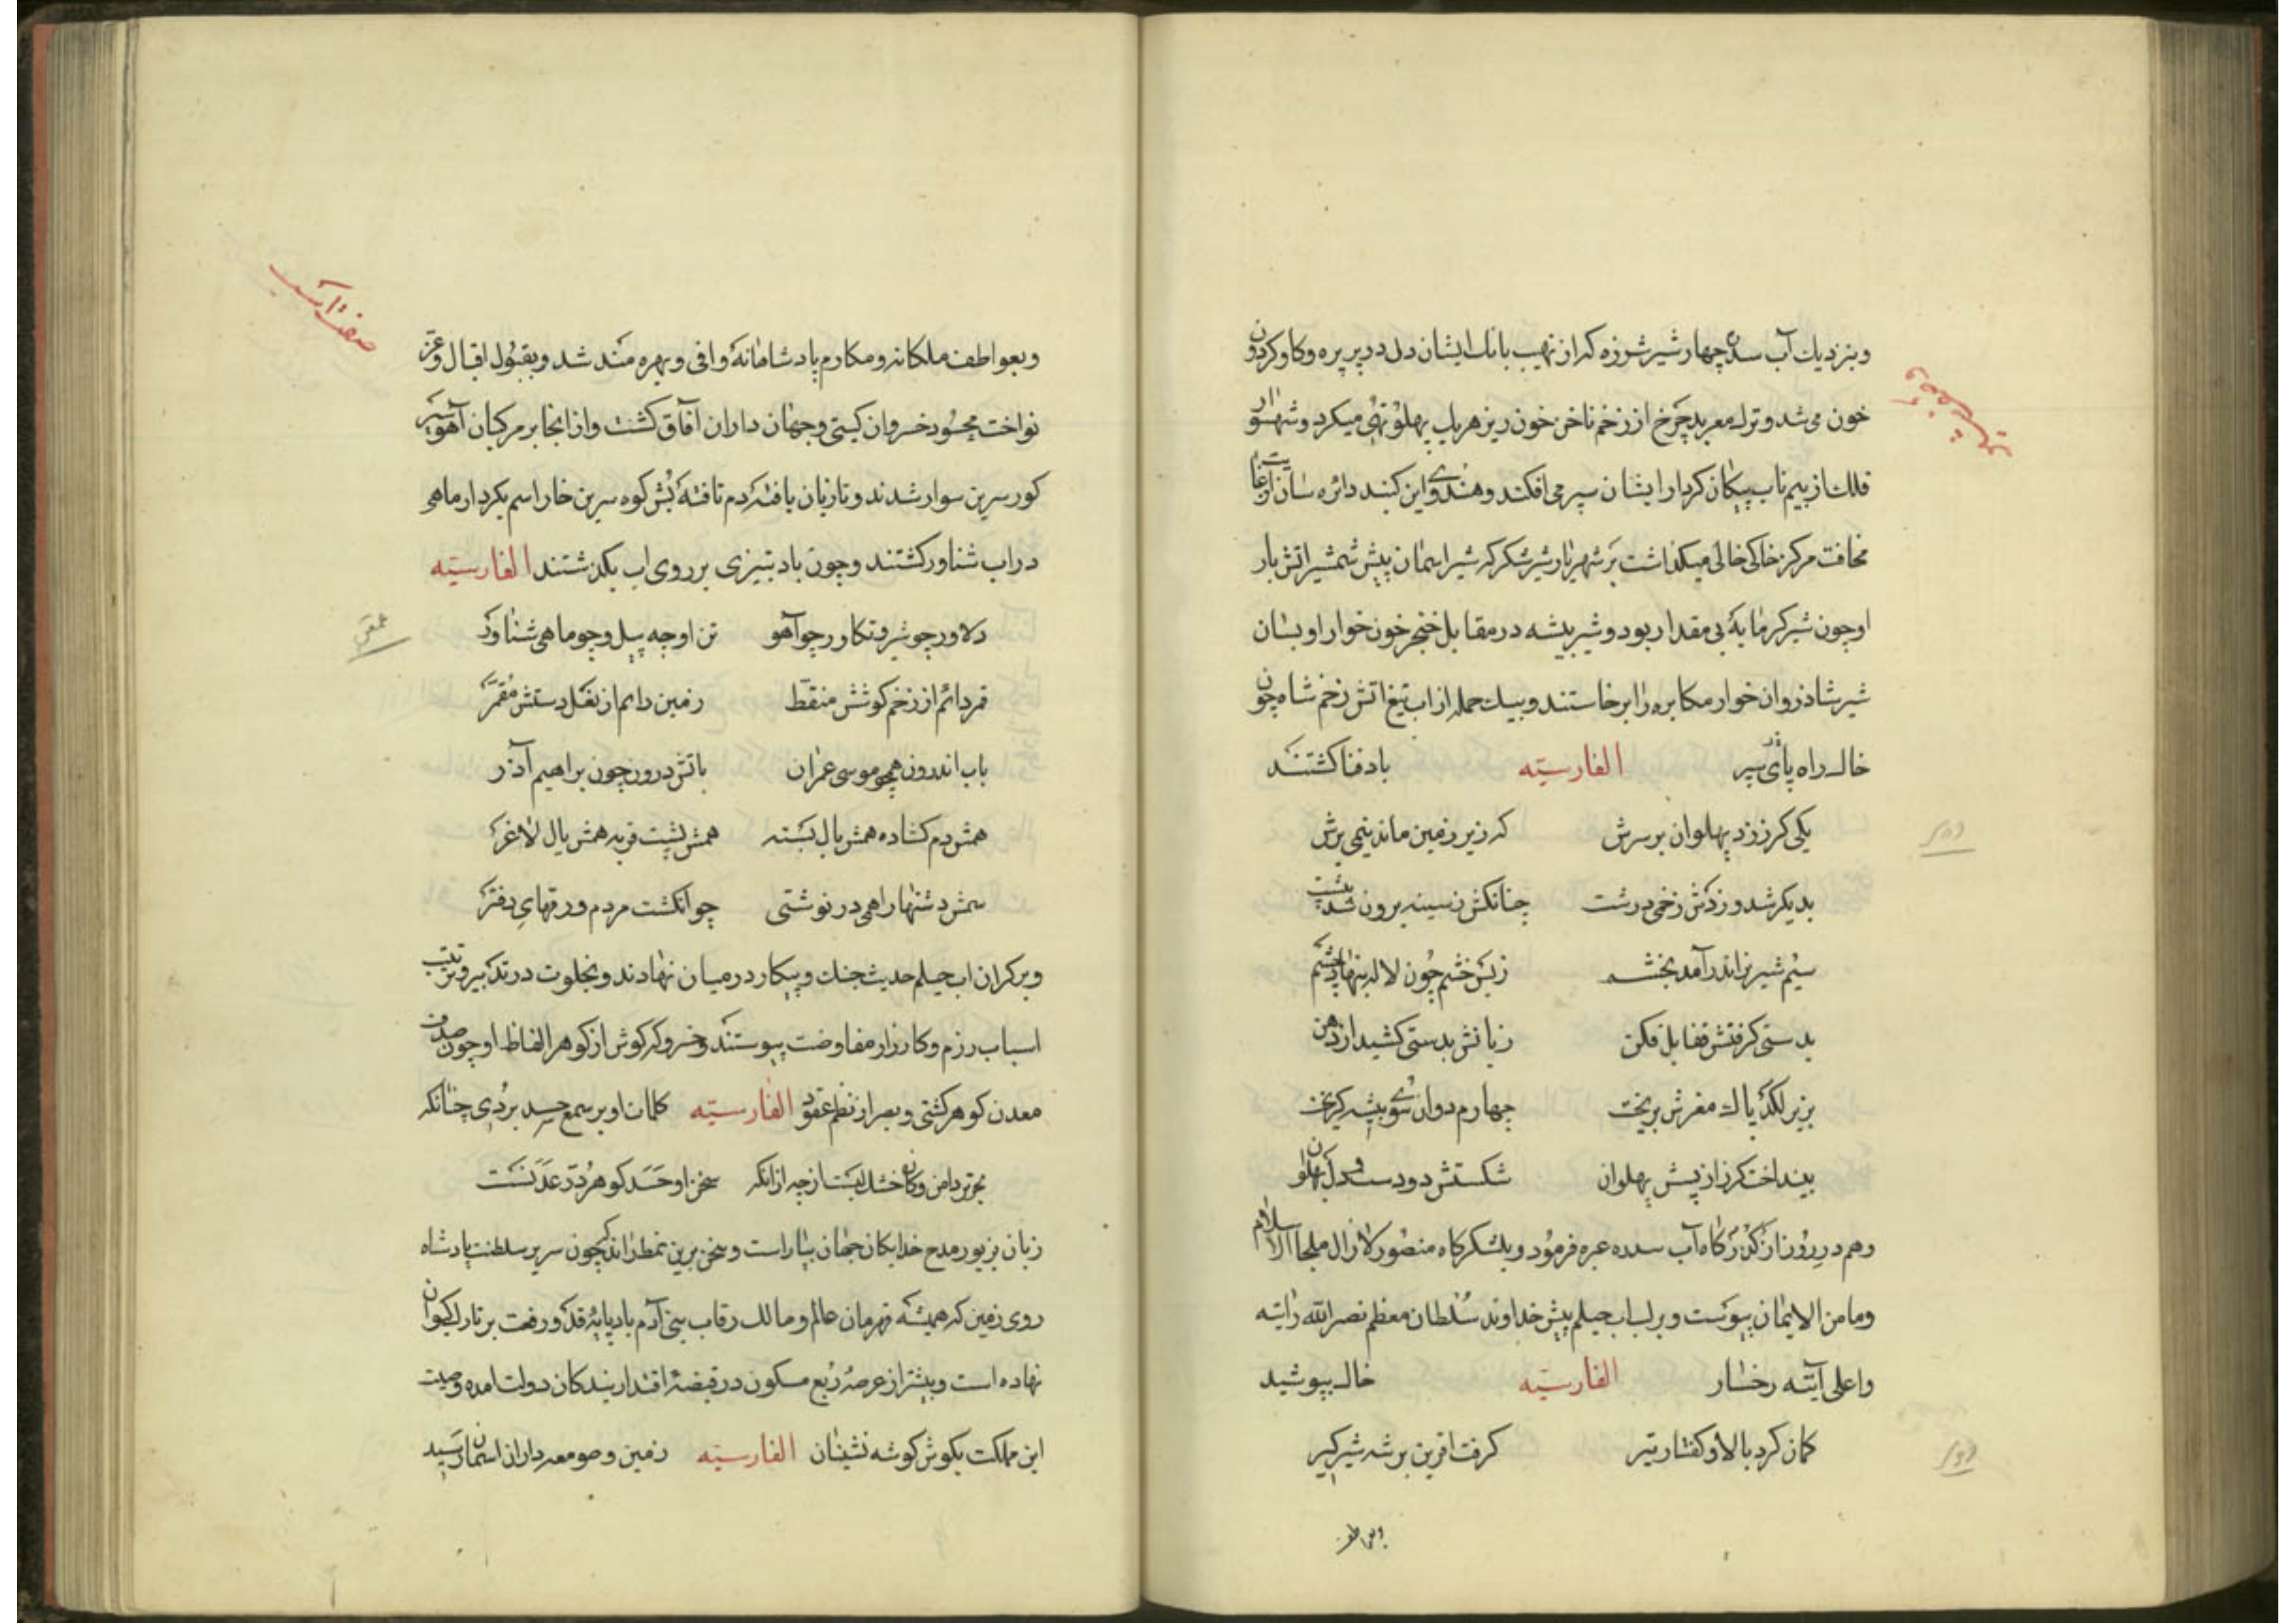 وبنزدیك آب سدره چهار شیر شرزه که از نهیب بانك ایشان دل در پیره وکاو کردون
خون می شد و ترك معربد چرخ از زخم ناخن خون ریز هر یك پهلو تهی میکرد و شهسوار
فلك از بیم ناب پیکان کردار ایشان سپر می افکند و هندوی این کنبد دائره سان از غایت
مخافت مرکز خاکی خالی میکذاشت بر شهریار شیر شکر که شیر اسمان پیش شمشیر اتش بار
او چون شیر کرمابه بی مقدار بود و شیر بیشه در مقابل خنجر خون خوار او بسان
شیر شاذروان خوار مکابره را برخاستند و بیك حمله از اب تیغ اتش زخم شاه چون
خاك راه پای سپر الفارسیّه باد فنا کشتند
یکی کرز زد پهلوان بر سرش که زیر زمین ماند نیمی برش
بدیکر شد و زدش زخمی درشت چنانکش ز سینه برون شد ز پشت
سیم شیر نر اندر آمد بخشم ز بس خشم چون لاله بنهاد چشم
بدستی کرفتش قفا بل فکن زبانش بدستی کشید از دهن
بزیر لکد پاك مغزش بریخت چهارم دوان سوی بیشه کریخت
بینداخت کرز از پسش پهلوان شکستش دو دست و دل پهلوان
وهم در روز از کذرکاه آب سدره عبره فرمود و بلشکرکاه منصور لازال ملجا الاسلام
ومامن الایمان پیوست و بر لب اب جیلم پیش خداوند سلطان معظم نصر الله رایته
واعلی آیته رخسار الفارسیّه خاك بپوشید
کمان کرد بالا و کفتار تیر کرفت افرین بر شه شیر کیر
وبعواطف ملکانه و مکارم پادشاهانه وافی و بهره مند شد و بقبول اقبال و عز
نواخت محسود خسروان کیتی و جهان داران آفاق کشت و از انجا بر مرکبان آهو سیر
کور سرین سوار شدند و تازیان بافته دم تافته بش کوه سرین خارا سم بکردار ماهی
در اب شناور کشتند و چون باد بتیزی بر روی اب بکذشتند الفارسیّه
دلاور چو شیر و تکاور چو آهو تن او چه پیل و چو ماهی شناور
قمر دائم از زخم کوشش منقط زمین دایم از نعل دستش مقمر
باب اندرون همچو موسی عمران باتش درور چون براهیم آذر
همش دم کشاده همش یال بسته همش پشت فربه همش یال لاغر
سمش دشتها را همی در نوشتی چو انکشت مردم ورقهای دفتر
وبر کران اب جیلم حدیث جنك و پیکار در میان نهادند و بخلوت در تدبیر و ترتیب
اسباب رزم و کارزار مفاوضت پیوستند و خسرو که کوش از کوهر الفاظ او چون صدف
معدن کوهر کشتی و بصر از نظم عقود الفارسیّه کلمات او بر سمع حسد بردی چنانکه
بحر تر دامن و کان خشك لبست از چه از انکه سخن او حسد کوهر و در عدنست
زبان بزیور مدح خدایکان جهان بیاراست و سخن برین نمط راند که چون سریر سلطنت پادشاه
روی زمین که همیشه قهرمان عالم و مالك رقاب بنی آدم باد پایه قدر و رفعت بر تارك کیوان
نهاده است و بیشتر از عرصه ربع مسکون در قبضه اقتدار بندکان دولت امده و صیت
این مملکت بکوش کوشه نشینان الفارسیّه زمین و صومعه داران اسمان رسید